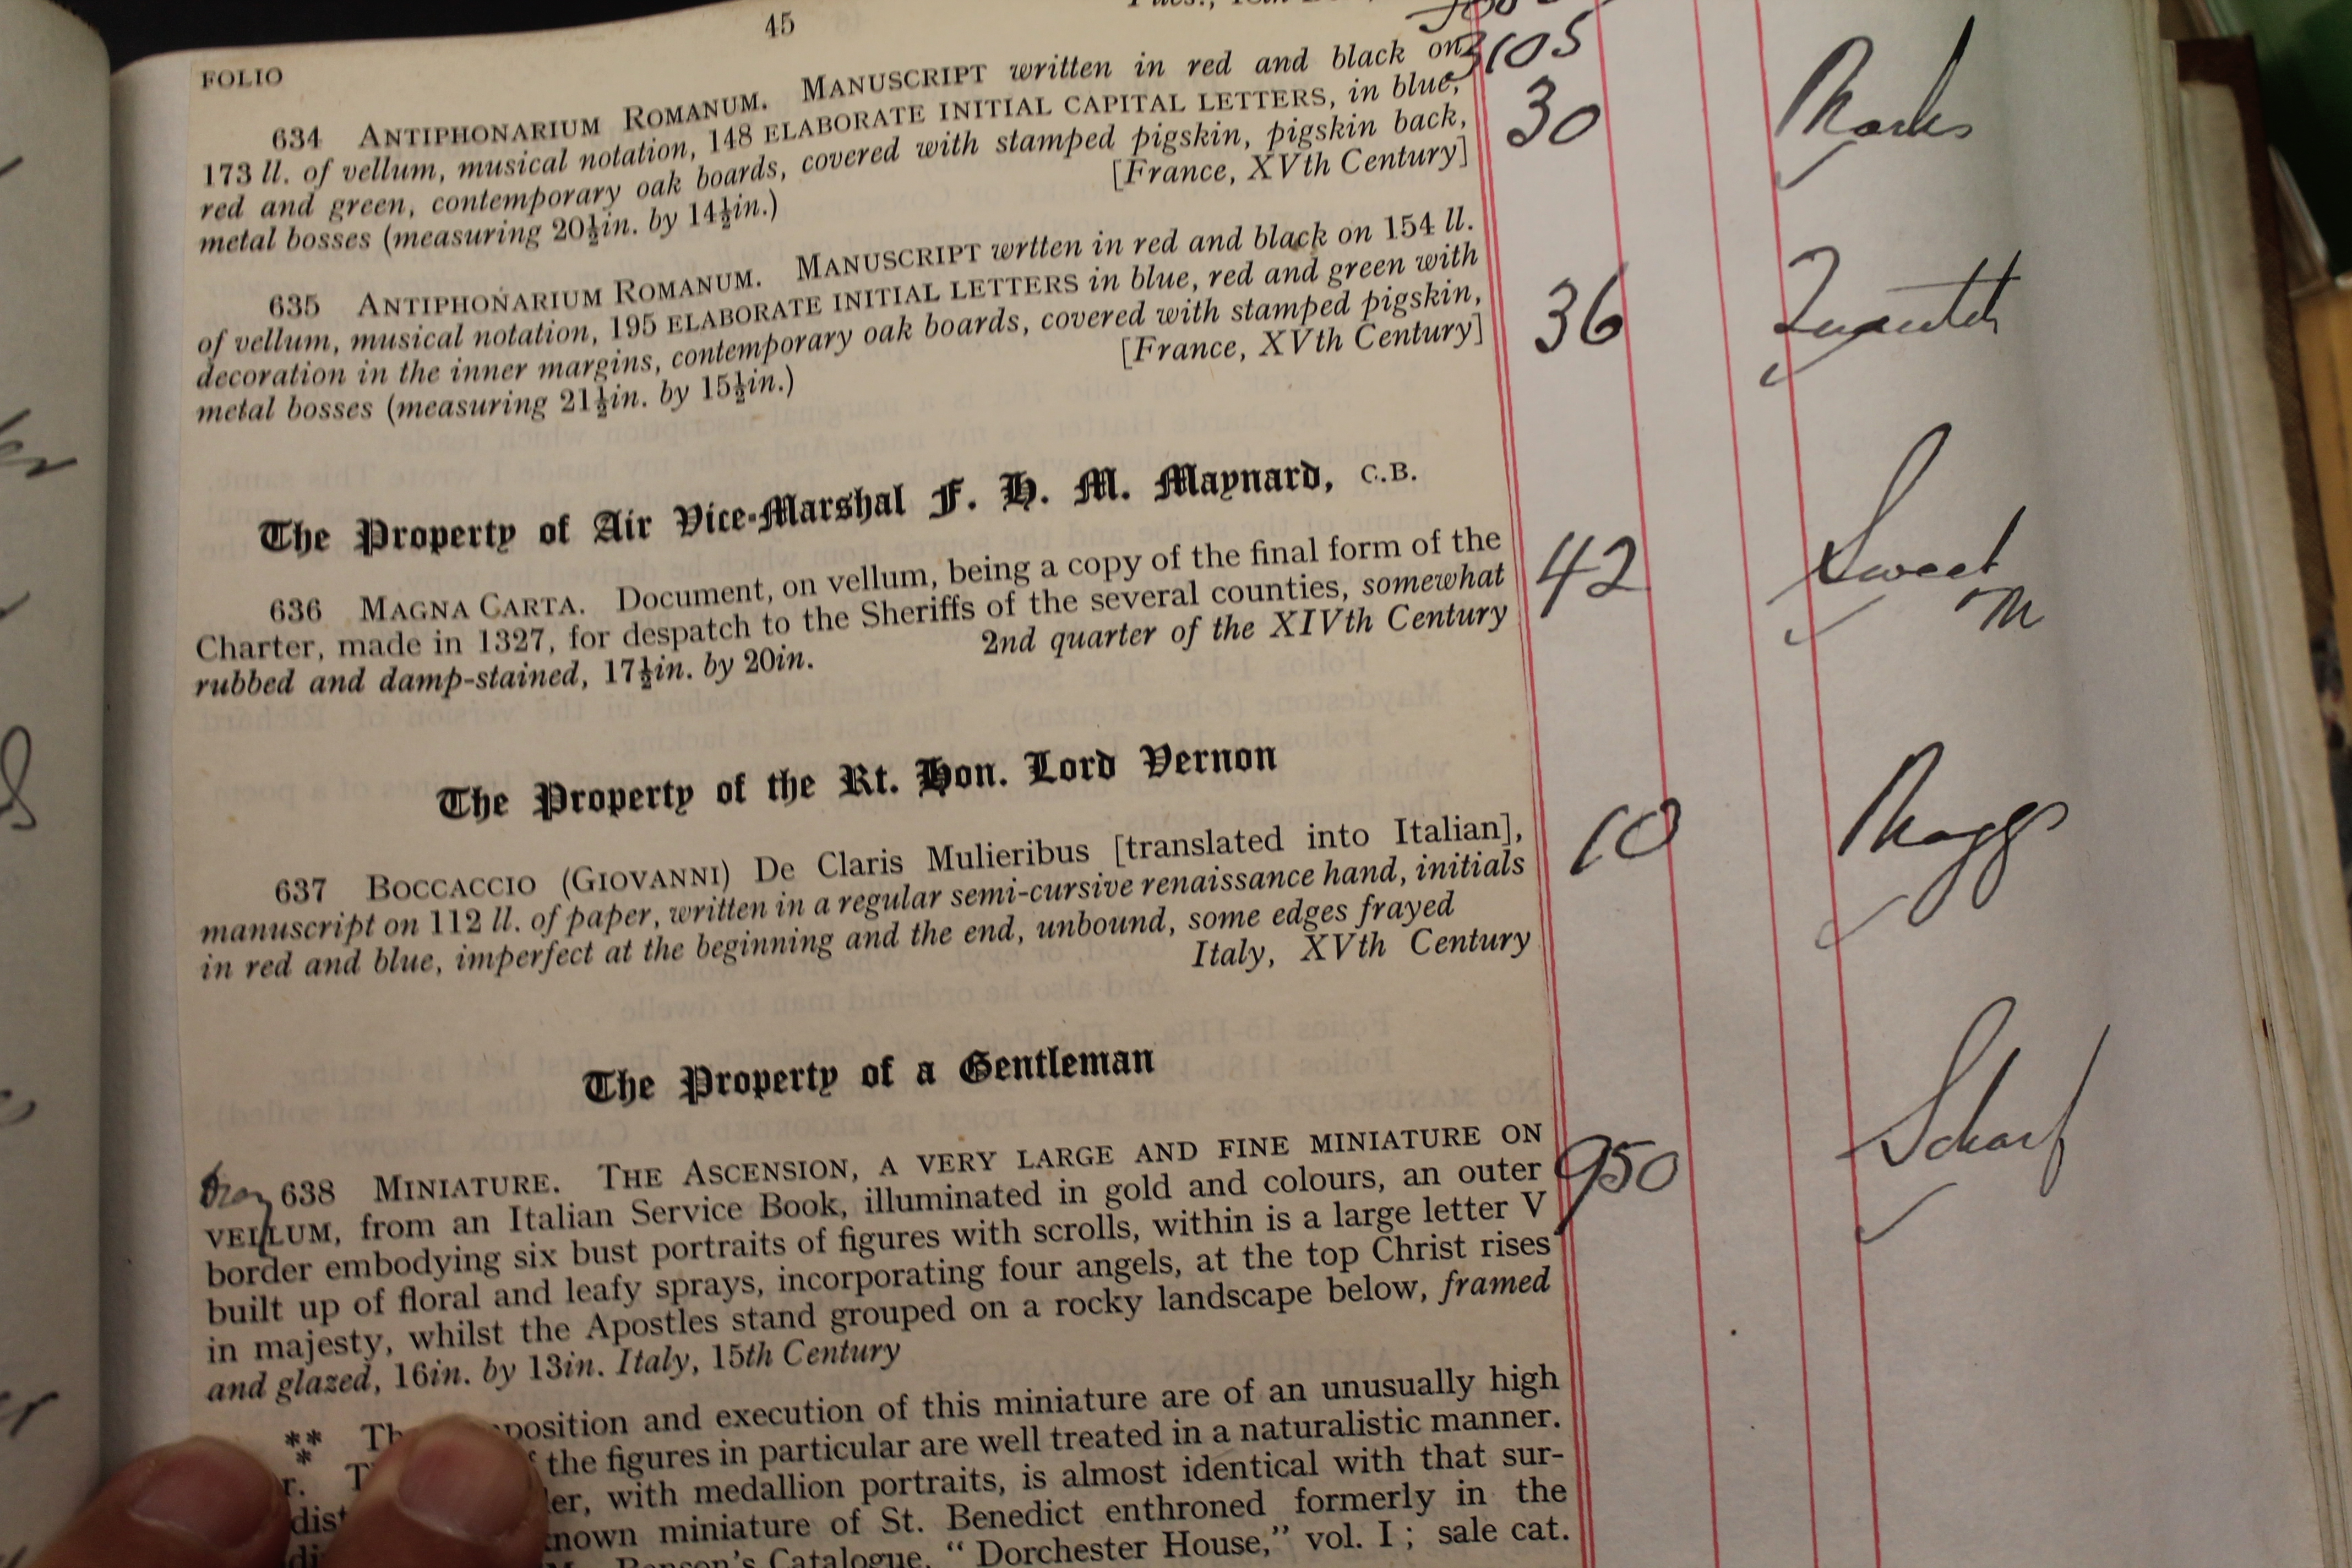 45
FOLIO
3105
634 ANTIPHONARIUM ROMANUM. MANUSCRIPT written in red and black on
173 ll. of vellum, musical notation, 148 ELABORATE INITIAL CAPITAL LETTERS, in blue,
red and green, contemporary oak boards, covered with stamped pigskin, pigskin back,
metal bosses (measuring 20½in. by 14½in.) [France, XVth Century]
30 Marks
635 ANTIPHONARIUM ROMANUM. MANUSCRIPT wrtten in red and black on 154 ll.
of vellum, musical notation, 195 ELABORATE INITIAL LETTERS in blue, red and green with
decoration in the inner margins, contemporary oak boards, covered with stamped pigskin,
metal bosses (measuring 21½in. by 15½in.) [France, XVth Century]
36 Quaritch
The Property of Air Vice-Marshal F. H. M. Maynard, C.B.
636 MAGNA CARTA. Document, on vellum, being a copy of the final form of the
Charter, made in 1327, for despatch to the Sheriffs of the several counties, somewhat
rubbed and damp-stained, 17½in. by 20in. 2nd quarter of the XIVth Century
42 Sweet
M
The Property of the Rt. Hon. Lord Vernon
637 BOCCACCIO (GIOVANNI) De Claris Mulieribus [translated into Italian],
manuscript on 112 ll. of paper, written in a regular semi-cursive renaissance hand, initials
in red and blue, imperfect at the beginning and the end, unbound, some edges frayed
Italy, XVth Century
10 Maggs
The Property of a Gentleman
638 MINIATURE. THE ASCENSION, A VERY LARGE AND FINE MINIATURE ON
VELLUM, from an Italian Service Book, illuminated in gold and colours, an outer
border embodying six bust portraits of figures with scrolls, within is a large letter V
built up of floral and leafy sprays, incorporating four angels, at the top Christ rises
in majesty, whilst the Apostles stand grouped on a rocky landscape below, framed
and glazed, 16in. by 13in. Italy, 15th Century
950 Scharf
*** position and execution of this miniature are of an unusually high
the figures in particular are well treated in a naturalistic manner.
with medallion portraits, is almost identical with that sur-
known miniature of St. Benedict enthroned formerly in the
Catalogue, "Dorchester House," vol. I; sale cat.